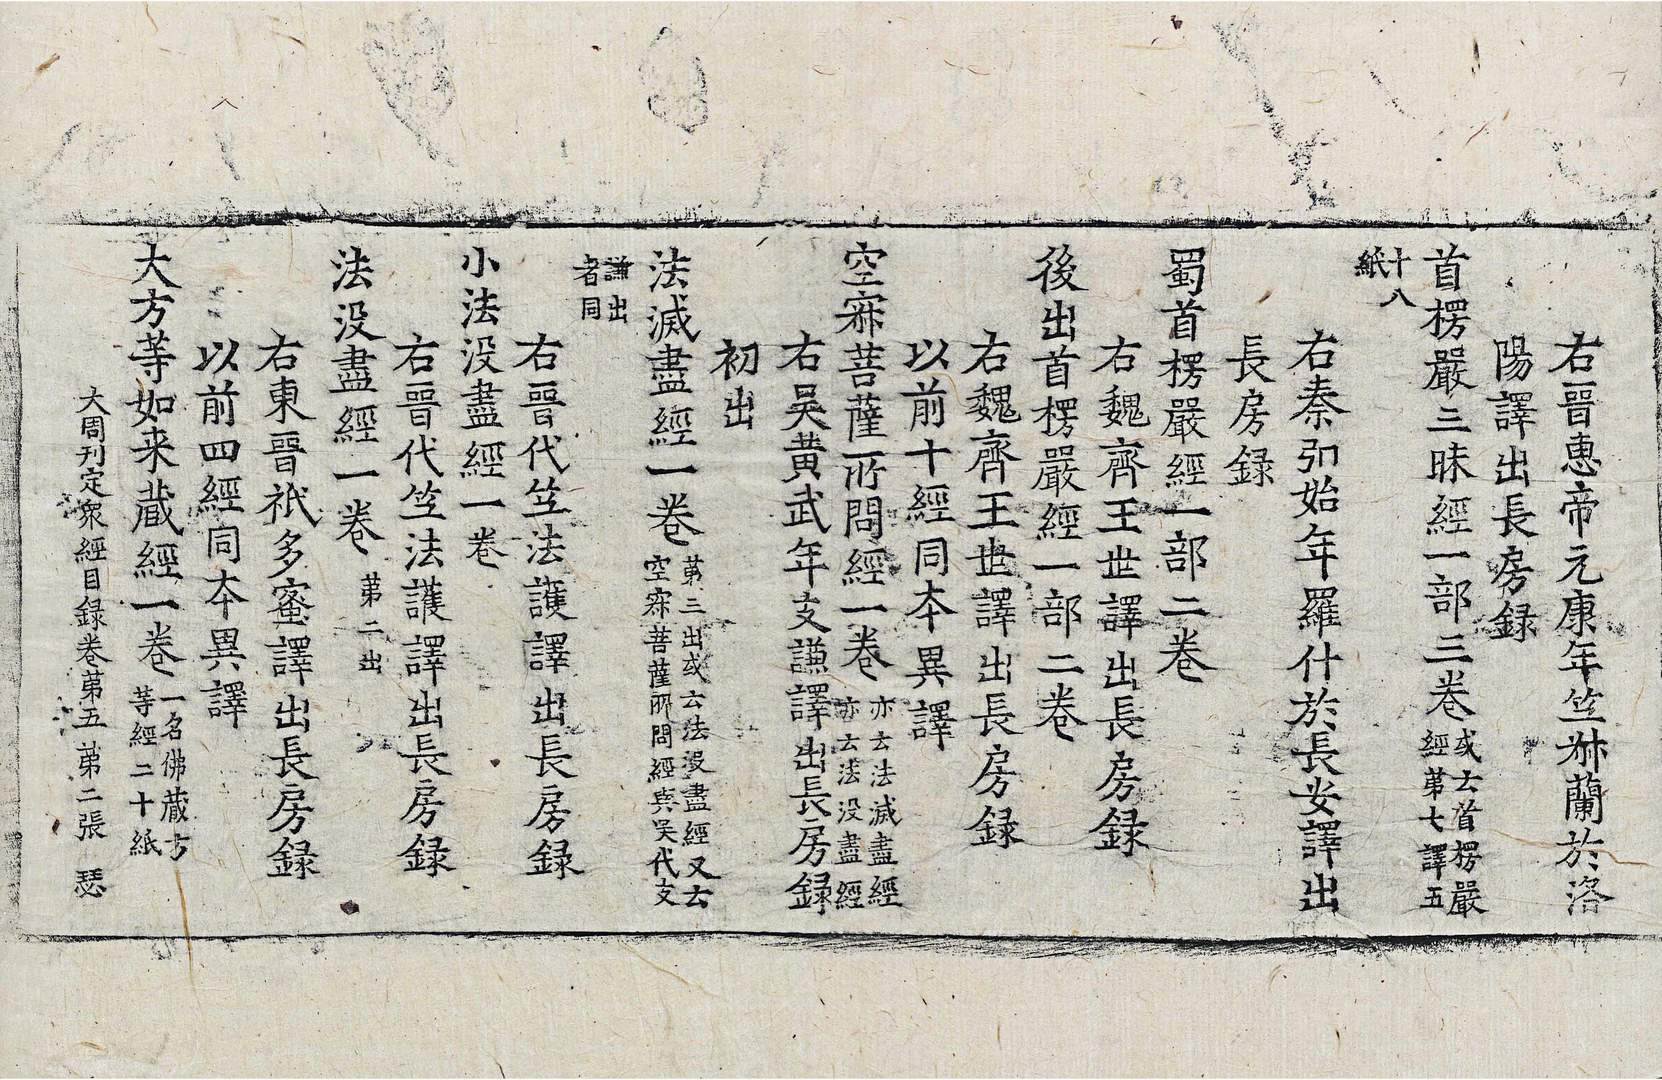 右晉惠帝元康年竺叔蘭於洛
陽譯出長房録
首楞嚴三昧經一部三卷
或云首楞嚴
經第七譯五
十八
紙
右秦弘始年羅什於長安譯出
長房録
蜀首楞嚴經一部二卷
右魏齊王世譯出長房録
後出首楞嚴經一部二卷
右魏齊王世譯出長房録
以前十經同本異譯
空寂菩薩所問經一卷
亦云法滅盡經
亦云法没盡經
右吴黄武年支謙譯出長房録
初出
法滅盡經一卷
第三出或云法没盡經又云
空寂菩薩所問經與吴代支
謙出
者同
右晉代竺法護譯出長房録
小法没盡經一卷
右晉代竺法護譯出長房録
法没盡經一卷
第二出
右東晉祇多蜜譯出長房録
以前四經同本異譯
大方等如来蔵經一卷
一名佛蔵方
等經二十紙
大周刊定衆經目録卷第五 第二張 瑟